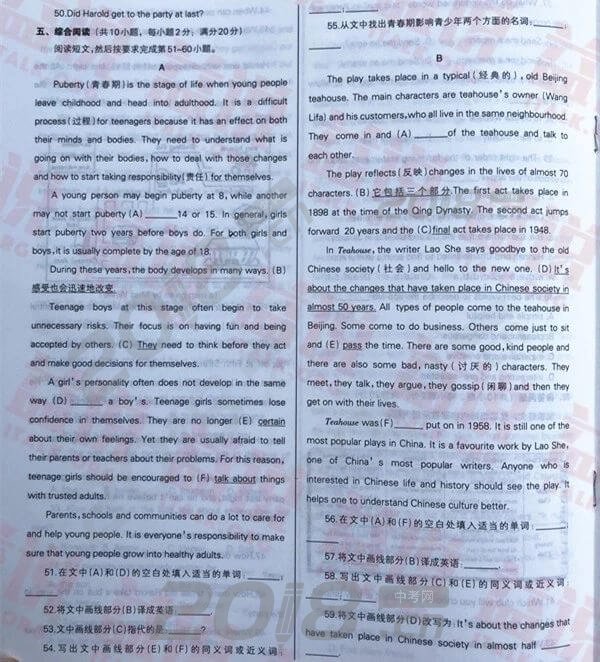 50.Did Harold get to the party at last?
五、综合阅读(共10小题,每小题2分;满分20分)
阅读短文,然后按要求完成第51-60小题。
A
Puberty(青春期)is the stage of life when young people
leave childhood and head into adulthood. It is a difficult
process(过程)for teenagers because it has an effect on both
their minds and bodies. They need to understand what is
going on with their bodies, how to deal with those changes
and how to start taking responsibility(责任)for themselves.
A young person may begin puberty at 8, while another
may not start puberty (A)______14 or 15. In general, girls
start puberty two years before boys do. For both girls and
boys, it is usually complete by the age of 18.
During these years, the body develops in many ways. (B)
感受也会迅速地改变.
Teenage boys at this stage often begin to take
unnecessary risks. Their focus is on having fun and being
accepted by others. (C) They need to think before they act
and make good decisions for themselves.
A girl's personality often does not develop in the same
way (D)______ a boy's. Teenage girls sometimes lose
confidence in themselves. They are no longer (E) certain
about their own feelings. Yet they are usually afraid to tell
their parents or teachers about their problems. For this reason,
teenage girls should be encouraged to (F) talk about things
with trusted adults.
Parents, schools and communities can do a lot to care for
and help young people. It is everyone's responsibility to make
sure that young people grow into healthy adults.
51.在文中(A)和(D)的空白处填入适当的单词:______;
______
52.将文中画线部分(B)译成英语:______.
53.文中画线部分(C)指代的是:______?
54.写出文中画线部分(E)和(F)的同义词或近义词:
______;______
55.从文中找出青春期影响青少年两个方面的名词:______;
______
B
The play takes place in a typical(经典的), old Beijing
teahouse. The main characters are teahouse's owner (Wang
Lifa) and his customers, who all live in the same neighbourhood.
They come in and (A) ______of the teahouse and talk to
each other.
The play reflects(反映)changes in the lives of almost 70
characters. (B)它包括三个部分.The first act takes place in
1898 at the time of the Qing Dynasty. The second act jumps
forward 20 years and the (C)final act takes place in 1948.
In Teahouse, the writer Lao She says goodbye to the old
Chinese society(社会)and hello to the new one. (D)It's
about the changes that have taken place in Chinese society in
almost 50 years. All types of people come to the teahouse in
Beijing. Some come to do business. Others come just to sit
and (E) pass the time. There are some good, kind people and
there are also some bad, nasty(讨厌的)characters. They
meet, they talk, they argue, they gossip(闲聊)and then they
get on with their lives.
Teahouse was(F)______ put on in 1958. It is still one of the
most popular plays in China. It is a favourite work by Lao She,
one of China's most popular writers. Anyone who is
interested in Chinese life and history should see the play. It
helps one to understand Chinese culture better.
56.在文中(A)和(F)的空白处填入适当的单词:______;
______
57.将文中画线部分(B)译成英语:______.
58.写出文中画线部分(C)和(E)的同义词或近义词:
______;______
59.将文中画线部分(D)改写为:It's about the changes that
have taken place in Chinese society in almost half ______
______.
2018
中考网